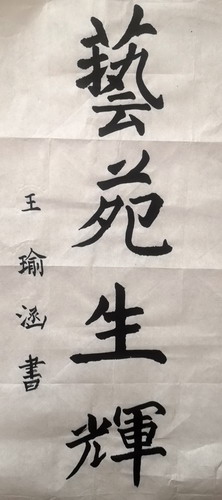 藝苑生輝
王瑜涵書